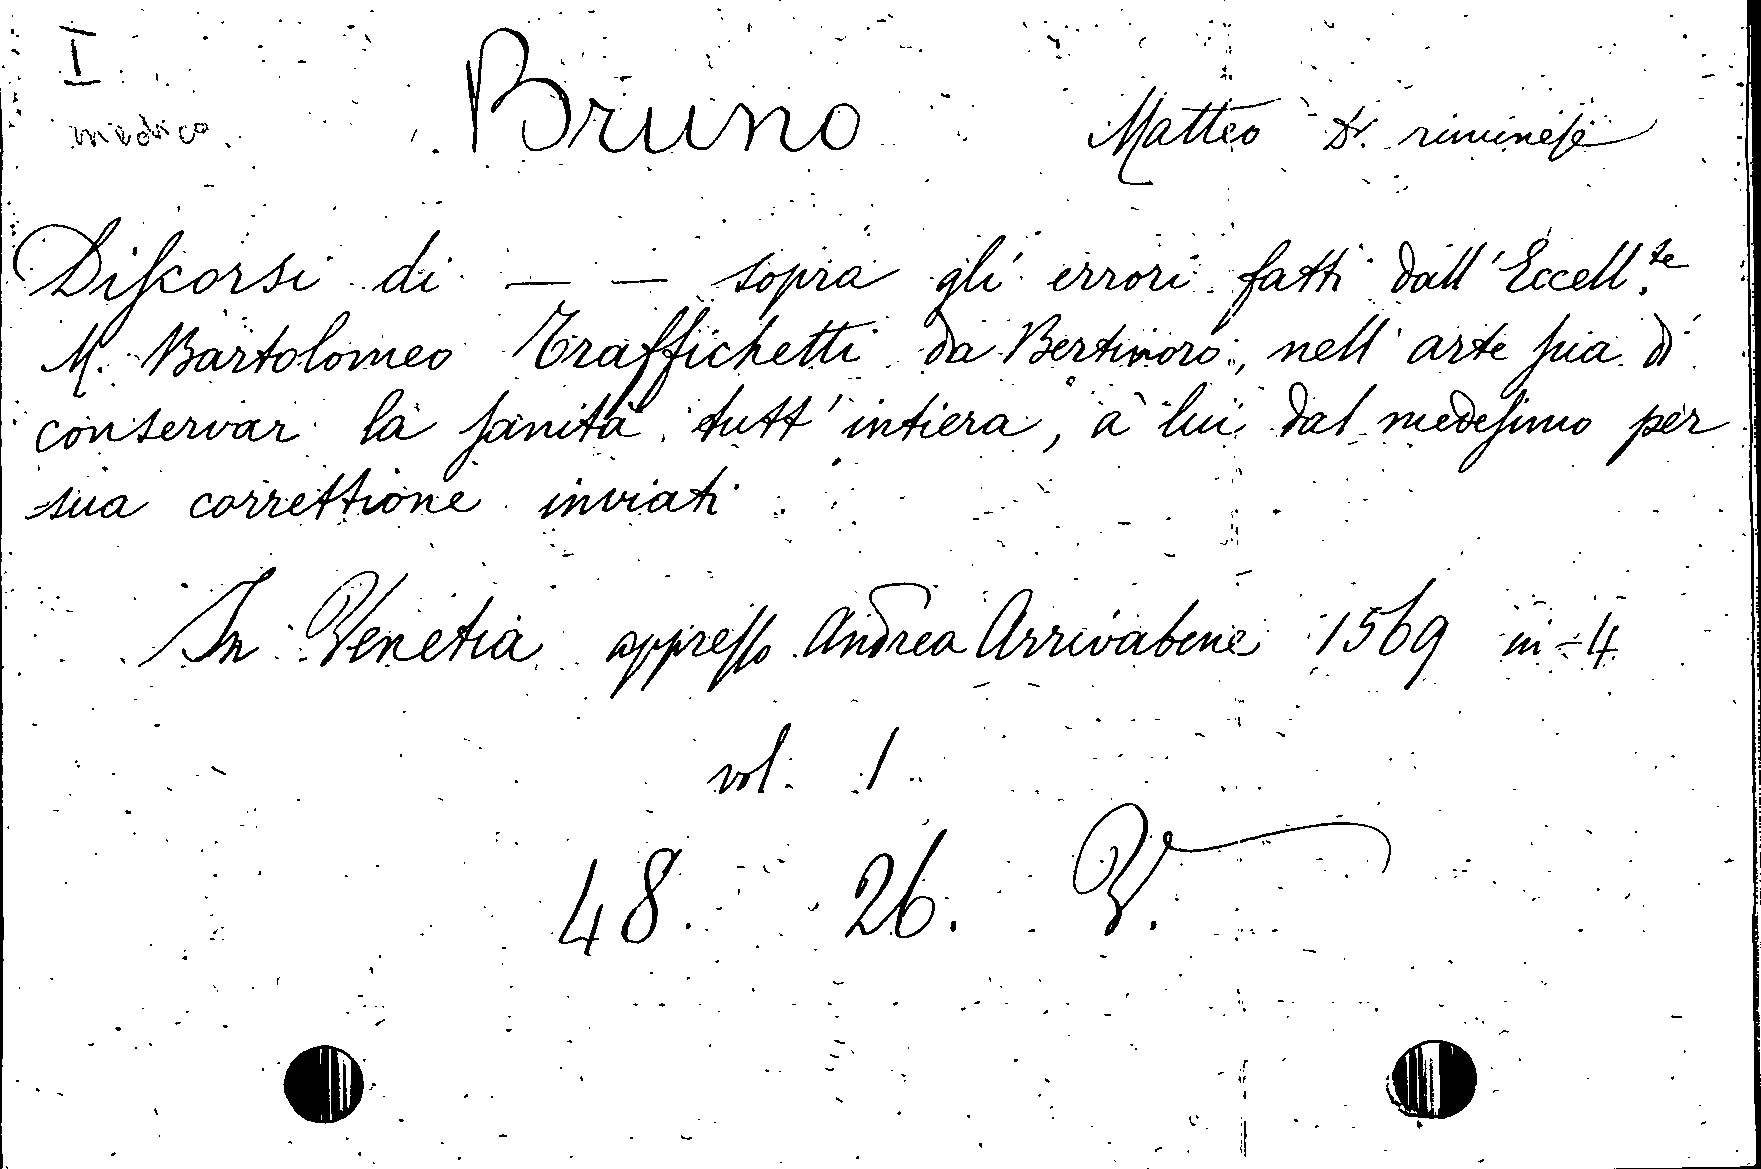 I
medico
Bruno Matteo Dr. riminese
Discorsi di — — sopra gli errori fatti dall'Eccell.te
M. Bartolomeo Traffichetti da Bertinoro, nell'arte sua di
conservar la sanità tutt'intiera, à lui dal medesimo per
sua correttione inviati
In Venetia appresso Andrea Arrivabene 1569 in-4
vol. 1
48. 26.